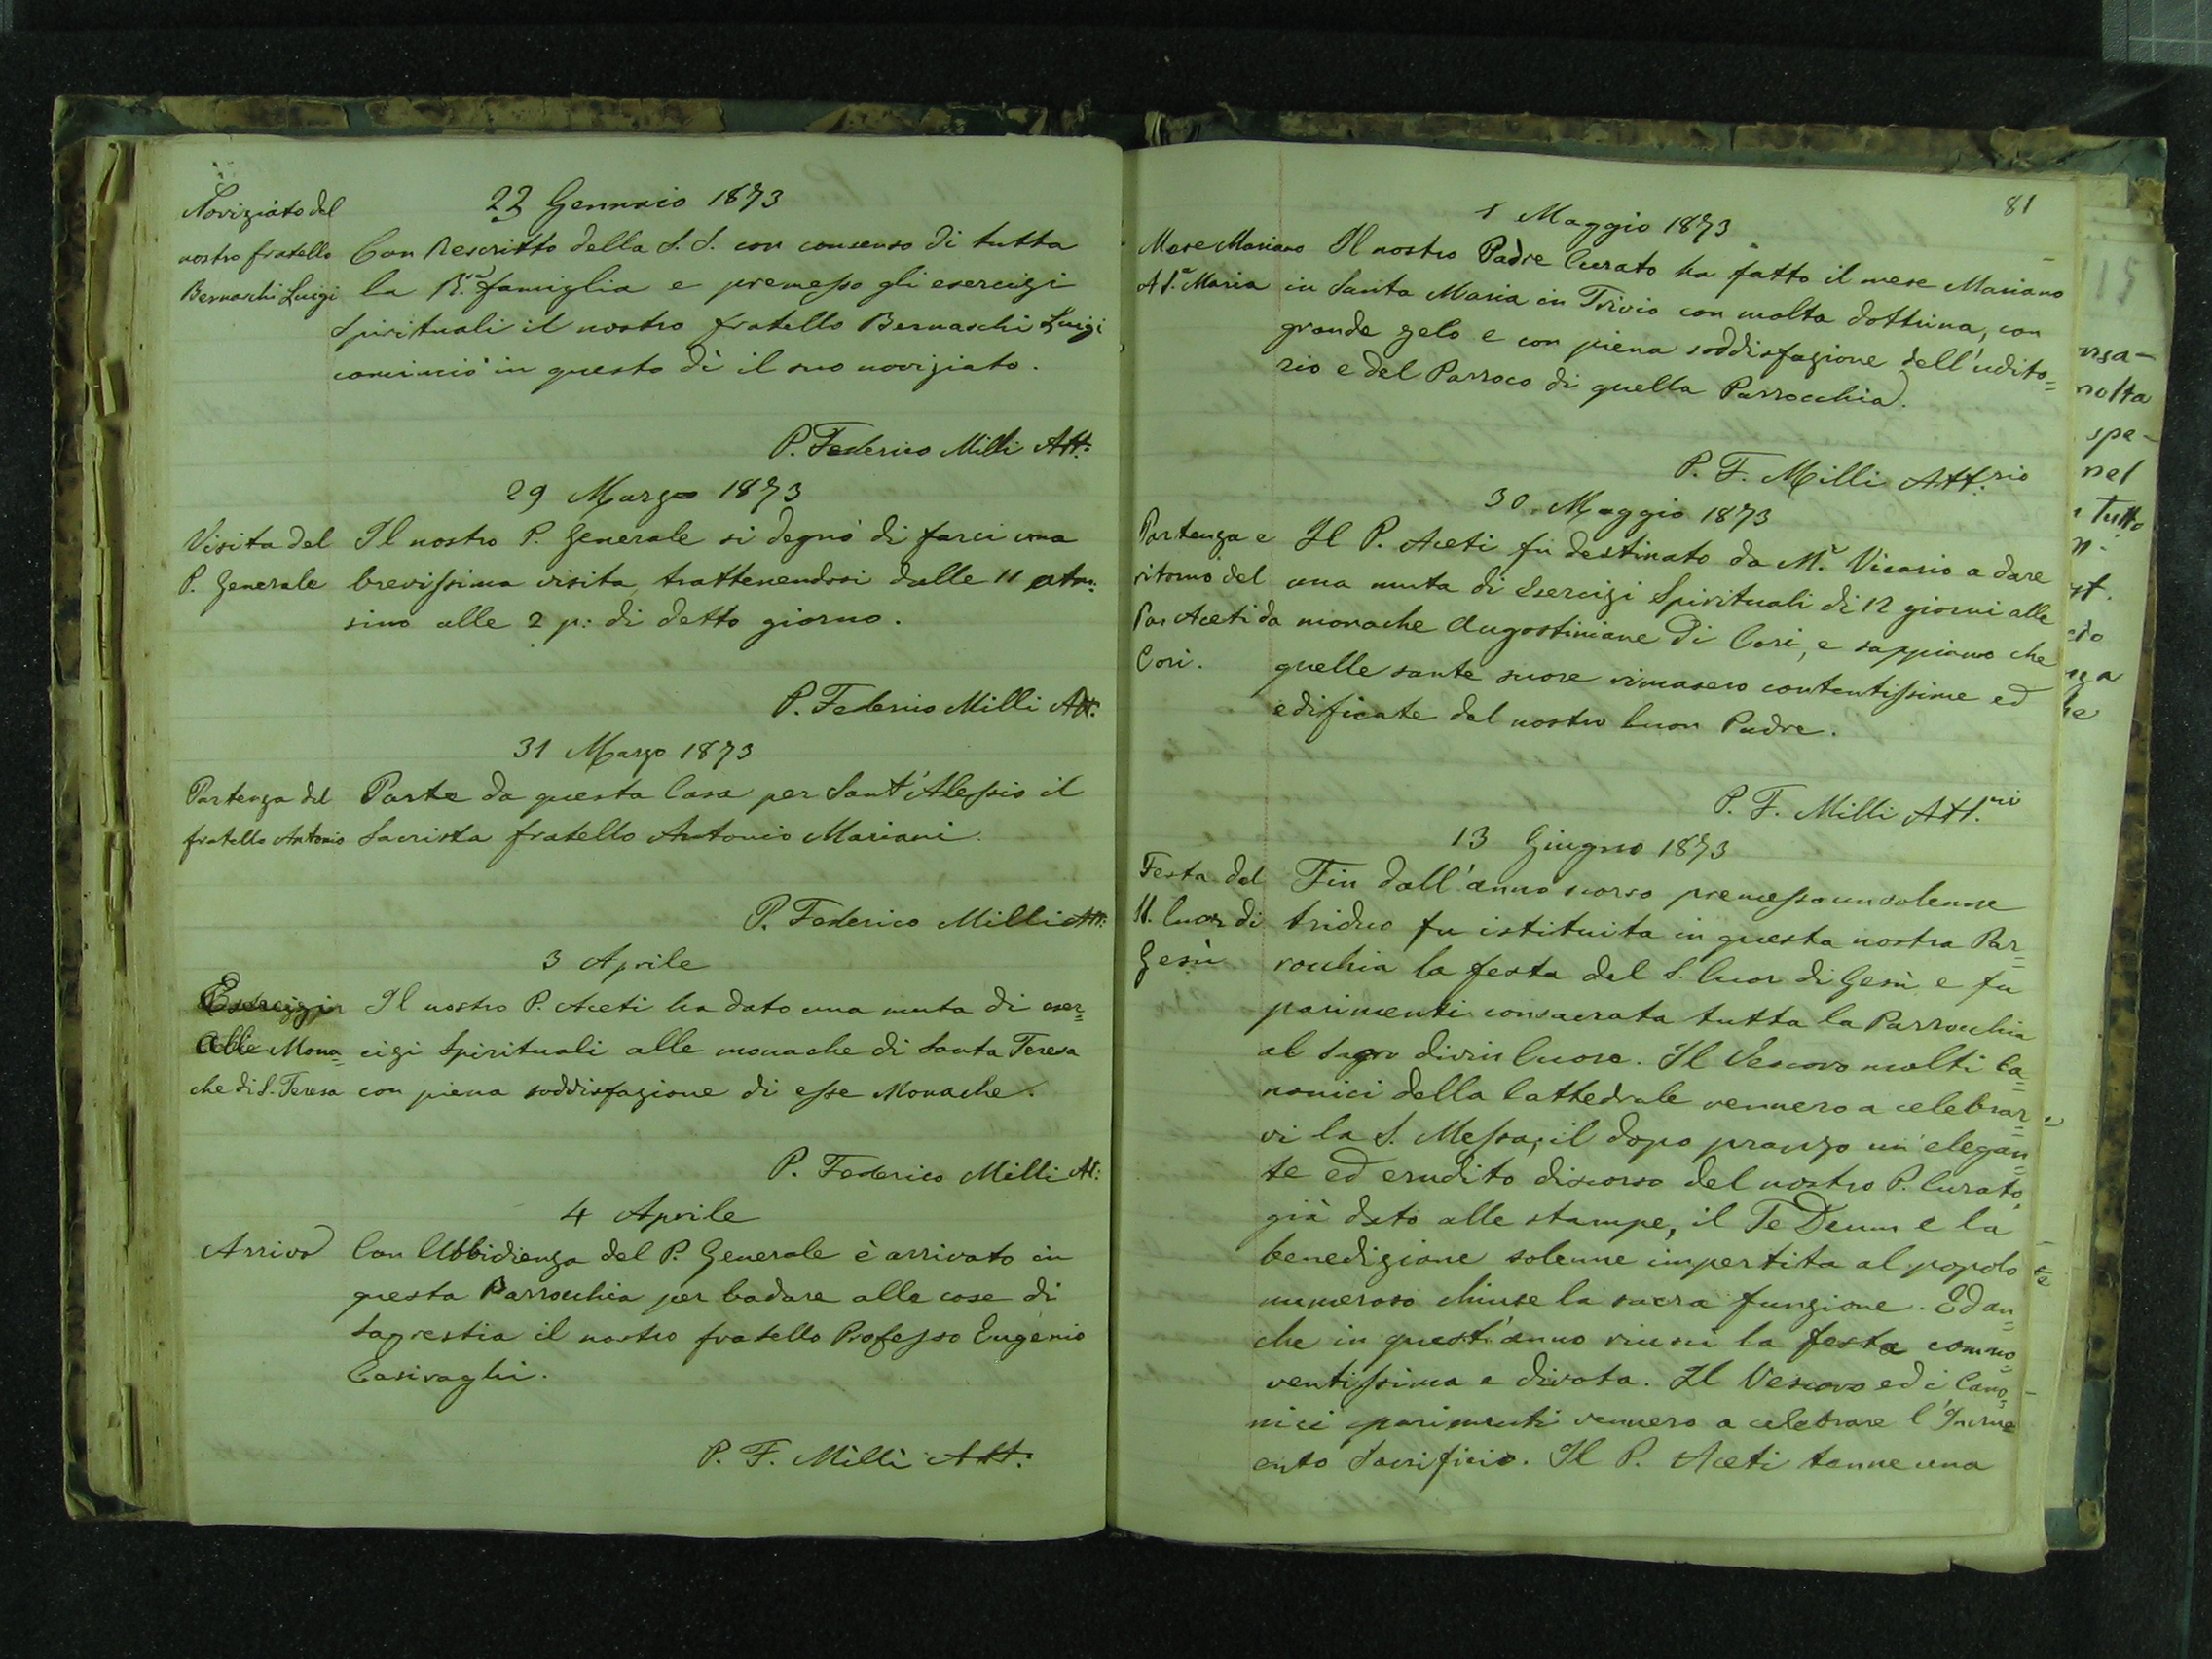 22 Gennaio 1873
Noviziato del
nostro fratello
Bernaschi Luigi
Con Rescritto della S. S. con consenso di tutta
la R.sa famiglia e premesso gli esercizi
Spirituali il nostro fratello Bernaschi Luigi
cominciò in questo dì il suo noviziato.
P. Federico Milli Att.
29 Marzo 1873
Visita del
P. Generale
Il nostro P. Generale si degnò di farci una
brevissima visita trattenendosi dalle 11
sino alle 2 p: di detto giorno.
P. Federico Milli Att.
31 Marzo 1873
Partenza del
fratello Antonio
Parte da questa Casa per Sant'Alessio il
Sacrista fratello Antonio Mariani.
P. Federico Milli Att.
3 Aprile
Esercizi
alle Mona=
che di S. Teresa
Il nostro P. Aceti ha dato una muta di eser=
cizi Spirituali alle monache di Santa Teresa
con piena soddisfazione di esse Monache.
P. Federico Milli At.
4 Aprile
Arrivo
Con Ubbidienza del P. Generale è arrivato in
questa Parrocchia per badare alle cose di
Sagrestia il nostro fratello Professo Eugenio
Casiraghi.
P. F. Milli Att.
81
1 Maggio 1873
Mese Mariano
A S.a Maria
Il nostro Padre Curato ha fatto il mese Mariano
in Santa Maria in Trivio con molta dottrina, con
grande zelo e con piena soddisfazione dell'udito=
rio e del Parroco di quella Parrocchia.
P. F. Milli Att.rio
30 Maggio 1873
Partenza e
ritorno del
Par Aceti da
Cori.
Il P. Aceti fu destinato da M.r Vicario a dare
una muta di Esercizi Spirituali di 12 giorni alle
monache Augostiniane di Cori, e sappiamo che
quelle sante suore rimasero contentissime ed
edificate del nostro buon Padre.
P. F. Milli Att.rio
13 Giugno 1873
Festa del
S. Cuor di
Gesù
Fin dall'anno scorso premesso un solenne
triduo fu istituita in questa nostra Par=
rocchia la festa del S. Cuor di Gesù e fu
parimenti consacrata tutta la Parrocchia
al Sagro divin Cuore. Il Vescovo molti Ca=
nonici della Cattedrale vennero a celebrar=
vi la S. Messa; il dopo pranzo un elegan=
te ed erudito discorso del nostro P. Curato,
già dato alle stampe, il Te Deum e la
benedizione solenne impertita al popolo
numeroso chiuse la sacra funzione. Ed an=
che in quest'anno riuscì la festa commo=
ventissima e divota. Il Vescovo ed i Cano=
nici parimenti vennero a celebrare l'Incru
ento Sacrificio. Il P. Aceti tenne una
rsa-
molta
spe-
nel
Tutto